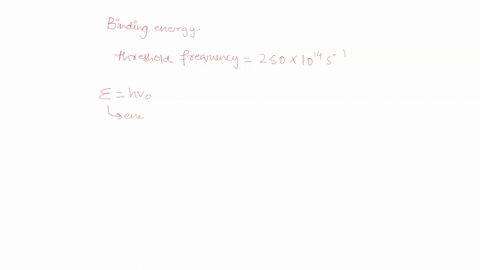 Binding energy.
threshold frequency = 250 × 10¹⁴ s⁻¹
E = hν₀
↳ ene